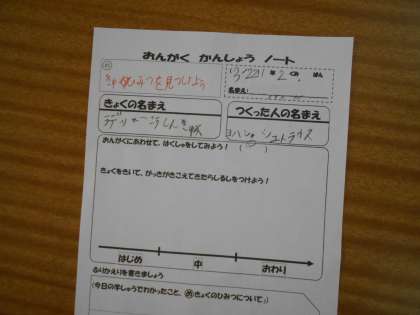 おんがく かんしょう ノート
め
きょくのひみつを見つけよう
年 2 くみ ばん
名まえ
きょくの名まえ
つくった人の名まえ
ラデツキーこうしんきょく
ヨハン シュトラウス
おんがくにあわせて、はくしゅをしてみよう！
きょくをきいて、がっきがきこえてきたらしるしをつけよう！
はじめ 中 おわり
ふりかえりを書きましょう
(今日の学しゅうでわかったこと、めきょくのひみつについて♪)